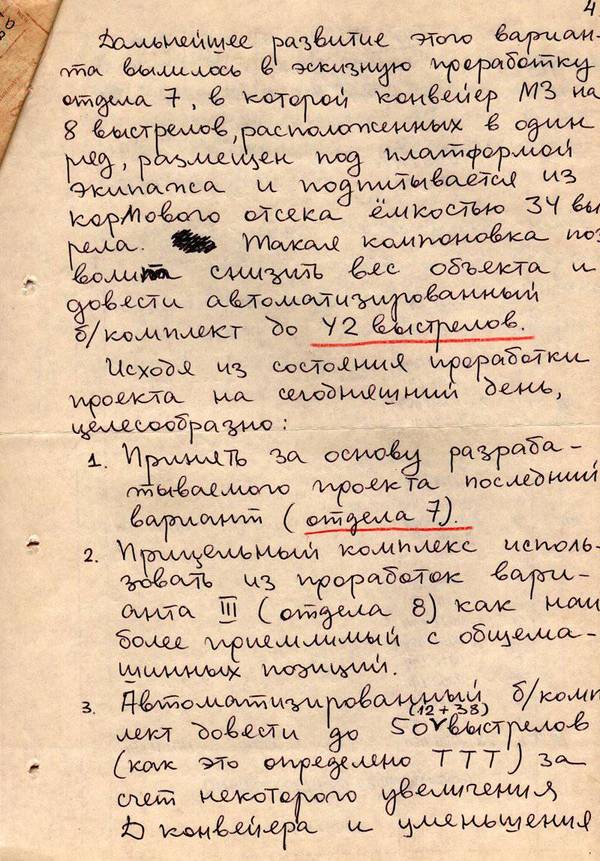 4
Дальнейшее развитие этого вариан-
та вылилось в эскизную проработку
отдела 7, в которой конвейер МЗ на
8 выстрелов, расположенных в один
ряд, размещен под платформой
экипажа и подпитывается из
кормового отсека ёмкостью 34 выс
рела. Такая компоновка поз
волит снизить вес объекта и
довести автоматизированный
б/комплект до 42 выстрелов.
Исходя из состояния проработки
проекта на сегодняшний день,
целесообразно:
1. Принять за основу разраба-
тываемого проекта последний
вариант (отдела 7).
2. Прицельный комплекс исполь-
зовать из проработок вари-
анта III (отдела 8) как наи
более приемлимый с общема-
шинных позиций.
3. Автоматизированный б/комп
(12+38)
лект довести до 50 выстрелов
(как это определено ТТТ) за
счет некоторого увеличения
Д конвейера и уменьшения